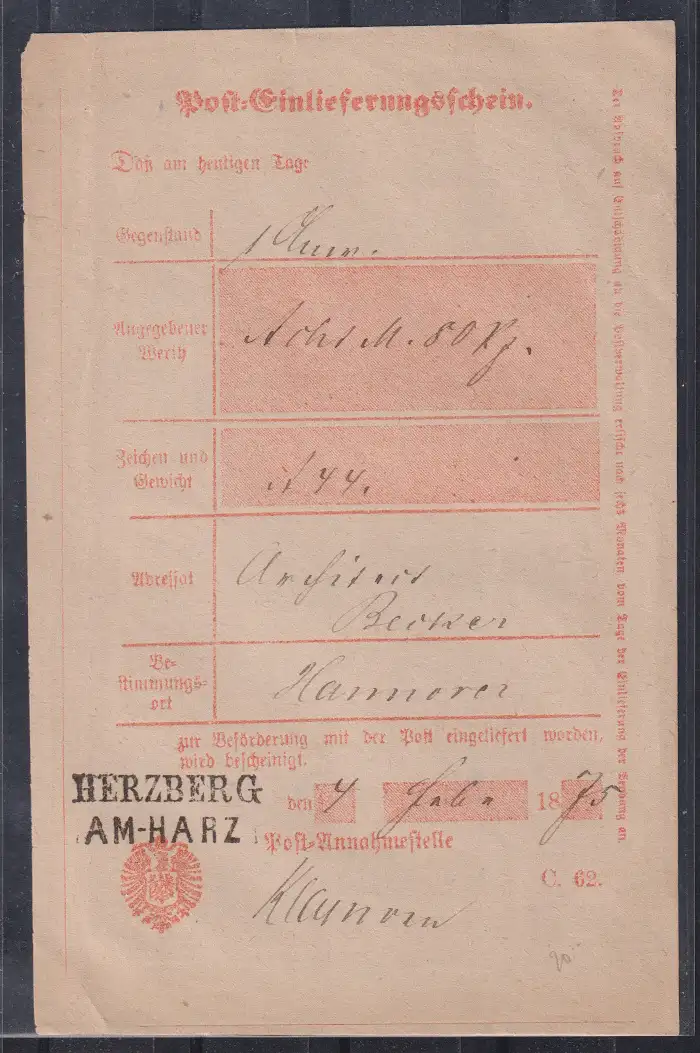 Post-Einlieferungsschein.
Daß am heutigen Tage
Gegenstand
1 Anw.
Angegebener
Werth
Acht M. 50 Pf.
Zeichen und
Gewicht
44.
Adressat
Architect
Becker
Be-
stimmungs-
ort
Hannover
zur Beförderung mit der Post eingeliefert worden,
wird bescheinigt.
HERZBERG
AM-HARZ
den 4 Febr 1875
Post-Annahmestelle
C. 62.
Der Anspruch auf Entschädigung an die Postverwaltung erlischt nach sechs Monaten, vom Tage der Einlieferung der Sendung an